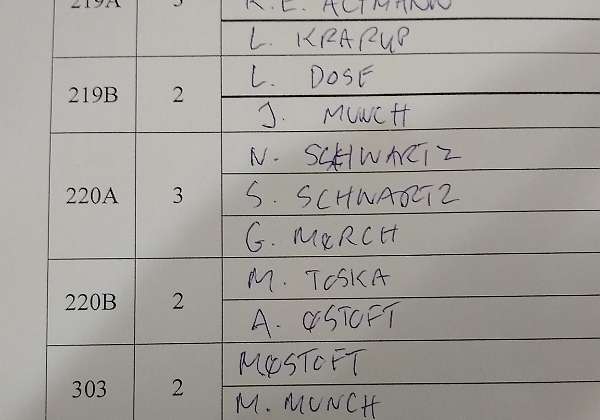 219A 3 K. E. ALTMANN
L. KRARUP
219B 2 L. DOSE
J. MUNCH
220A 3 N. SCHWARTZ
S. SCHWARTZ
G. MØRCH
220B 2 M. TOSKA
A. ØSTOFT
303 2 MØSTOFT
M. MUNCH